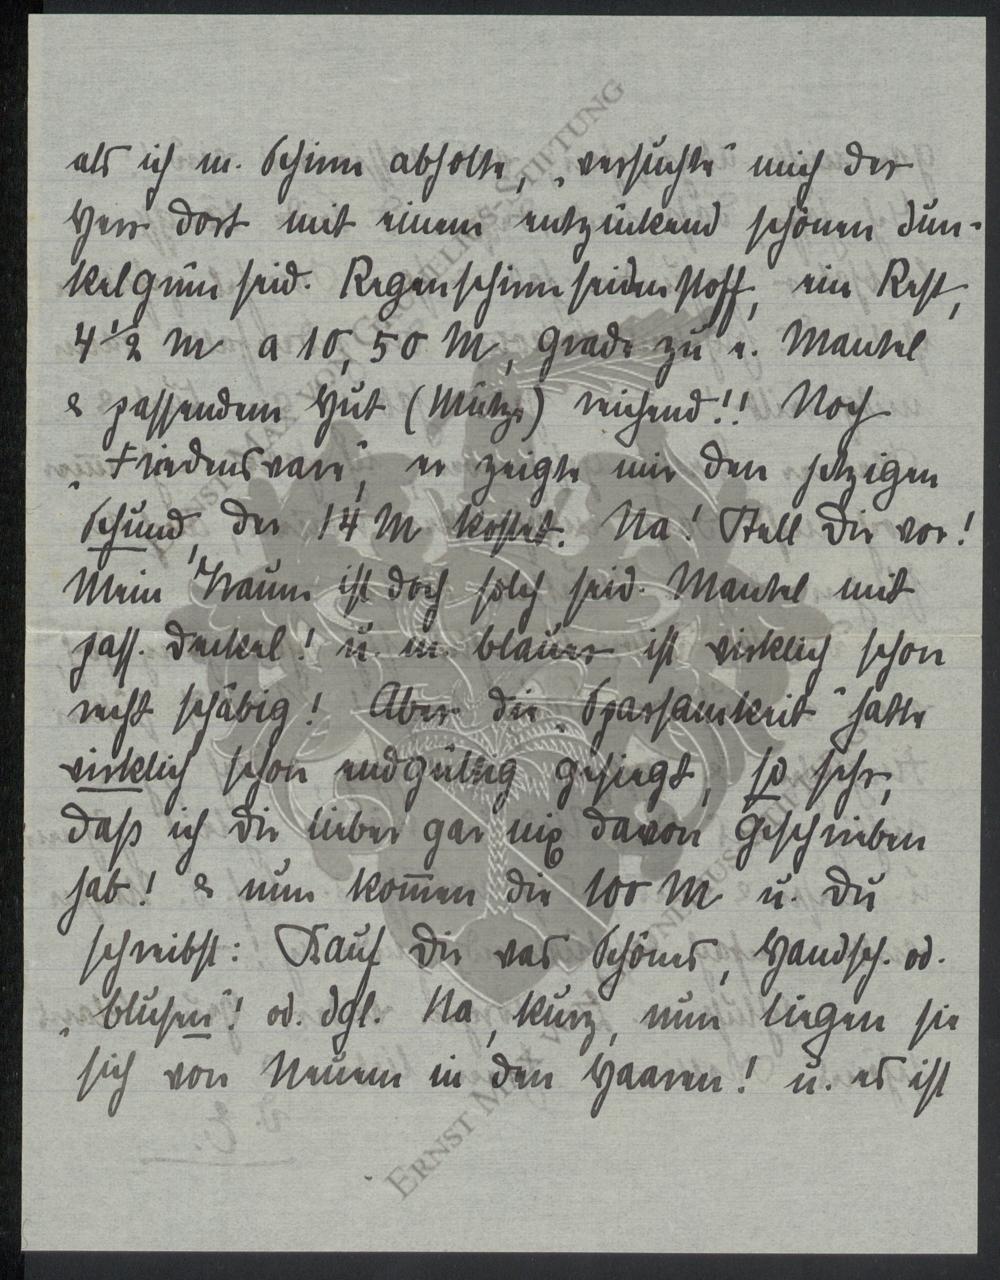 als ich m. Schirm abholte, „versuchte" mich der
Herr dort mit einem entzückend schönen dun-
kelgrün seid. Regenschirmseidenstoff, ein Rest,
4 1/2 m a 10,50 M, grade zu e. Mantel
& passendem Hut (Mütze) reichend!! Noch
„Friedensware", er zeigte mir den jetzigen
Schund, der 14 M kostet. Na! Stell Dir vor!
Mein Traum ist doch solch seid. Mantel mit
pass. Deckel! u. m. blauer ist wirklich schon
recht schäbig! Aber die „Sparsamkeit" hatte
wirklich schon endgültig gesiegt, so sehr,
daß ich Dir lieber gar nix davon geschrieben
hab! & nun kom̅en die 100 M u. Du
schreibst: Kauf Dir was Schönes, Handsch. od.
„blusen"! od. dgl. Na, kurz, nun liegen sie
sich von Neuem in den Haaren! u. es ist
ERNST MAX VON GRUNELIUS-STIFTUNG